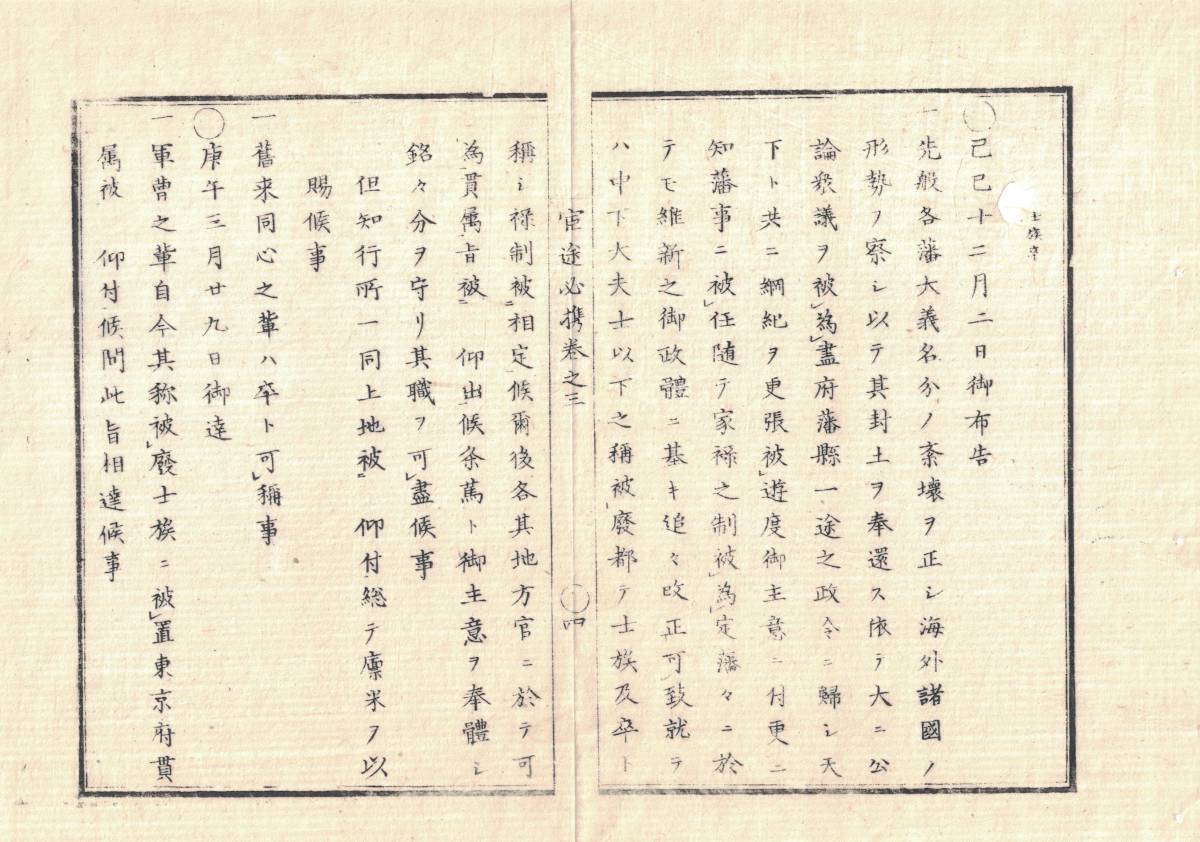 士族卒
◯己巳十二月二日御布告
一先般各藩大義名分ノ紊壊ヲ正シ海外諸國ノ
形勢ヲ察シ以テ其封土ヲ奉還ス依テ大ニ公
論衆議ヲ被レ為レ盡府藩縣一途之政令ニ歸シ天
下ト共ニ綱紀ヲ更張被レ遊度御主意ニ付更ニ
知藩事ニ被レ任随テ家禄之制被レ為レ定藩々ニ於
テモ維新之御政體ニ基キ追々改正可レ致就テ
ハ中下大夫士以下之稱被レ廢都テ士族及卒ト
官途必携巻之三
◯四
稱シ禄制被二相定一候爾後各其地方官ニ於テ可
為二貫属一旨被二 仰出一候条篤ト御主意ヲ奉體シ
銘々分ヲ守リ其職ヲ可レ盡候事
但知行所一同上地被二 仰付一総テ廩米ヲ以
賜候事
一舊来同心之輩ハ卒ト可レ稱事
◯庚午三月廿九日御達
一軍曹之輩自今其称被レ廢士族ニ被レ置東京府貫
属被 仰付候間此旨相達候事